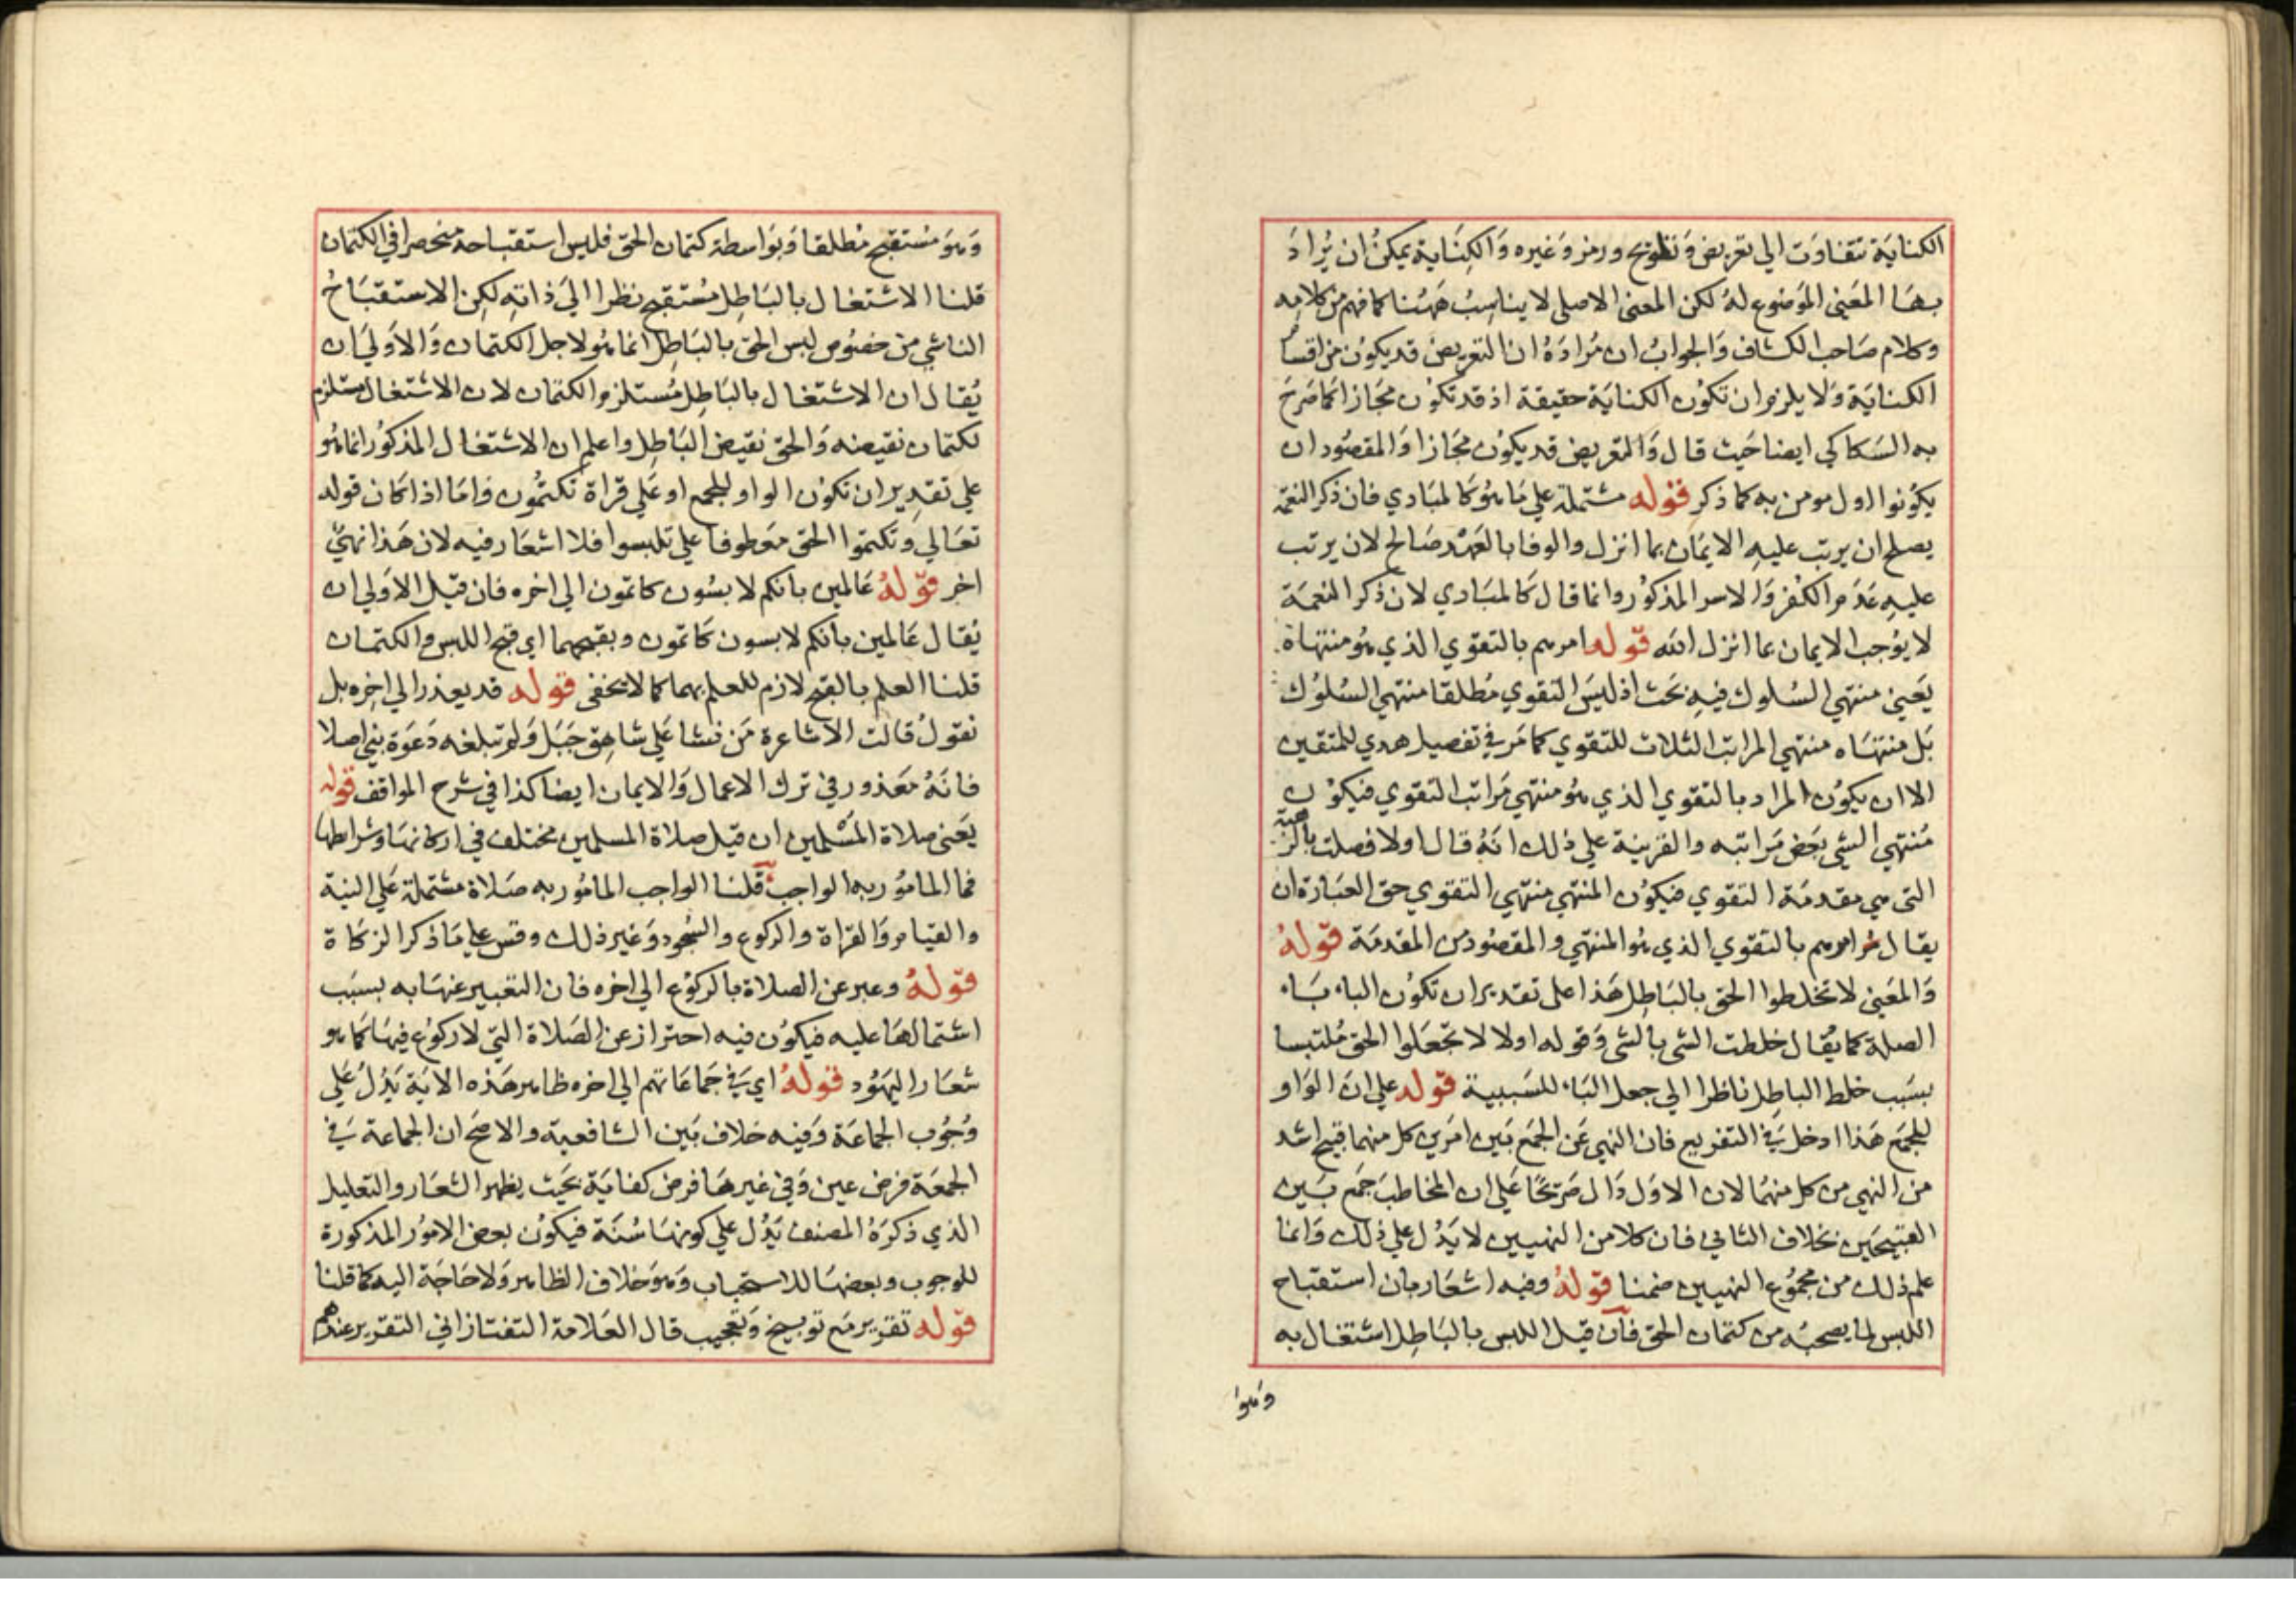 الكناية تتفاوت الي تعريض وتلويح ورمز وغيره والكناية يمكن ان يراد
بها المعني الموضوع له لكن المعني الاصلي لا يناسب ههنا كما فهم من كلامه
وكلام صاحب الكشاف والجواب ان مراده ان التعريض قد يكون من اقسام
الكناية ولا يلزم ان تكون الكناية حقيقة اذ قد تكون مجازا كما صرح
به السكاكي ايضا حيث قال والتعريض قد يكون مجازا والمقصود ان
يكونوا اول مومن به كما ذكر قوله مشتملة علي ما هو كالمبادي فان ذكر النعمة
يصلح ان يرتب عليه الايمان بما انزل والوفا بالعهد صالح لان يرتب
عليه عدم الكفر والامر المذكور وانما قال كالمبادي لان ذكر النعمة
لا يوجب الايمان بما انزل الله قوله امرهم بالتقوي الذي هو منتهاة
يعني منتهي السلوك فيه بحث اذ ليس التقوي مطلقا منتهي السلوك
بل منتهاه منتهي المراتب الثلاث للتقوي كما مر في تفصيل هدي للمتقين
الا ان يكون المراد بالتقوي الذي هو منتهي مراتب التقوي فيكون
منتهي الشي بعض مراتبه والقرينة علي ذلك انه قال اولا فصلت بالرهبة
التي هي مقدمة التقوي فيكون المنتهي منتهي التقوي حق العبارة ان
يقال ثم امرهم بالتقوي الذي هو المنتهي والمقصود من المقدمة قوله
والمعني لا تخلطوا الحق بالباطل هذا علي تقدير ان تكون الباء باء
الصلة كما يقال خلطت الشي بالشي وقوله اولا لا تجعلوا الحق ملتبسا
بسبب خلط الباطل ناظرا الي جعل الباء للسببية قوله علي ان الواو
للجمع هذا ادخل في التقريع فان النهي عن الجمع بين امرين كل منهما قبيح اشد
من النهي من كل منهما لان الاول دال صريحا علي ان المخاطب جمع بين
القبيحين بخلاف الثاني فان كلا من النهيين لا يدل علي ذلك وانما
علم ذلك من مجموع النهيين ضمنا قوله وفيه اشعار بان استقباح
اللبس لما يصحبه من كتمان الحق فان قيل اللبس بالباطل اشتغال به
وهو
وهو مستقبح مطلقا وبواسطة كتمان الحق فليس استقباحه منحصرا في الكتمان
قلنا الاشتغال بالباطل مستقبح نظرا الي ذاته لكن الاستقباح
الناشي من خصوص لبس الحق بالباطل انما هو لاجل الكتمان والاولي ان
يقال ان الاشتغال بالباطل مستلزم الكتمان لان الاشتغال مستلزم
لكتمان نقيضه والحق نقيض الباطل واعلم ان الاشتغال المذكور انما هو
علي تقدير ان تكون الواو للجمع او علي قراة تكتمون واما اذا كان قوله
تعالي وتكتموا الحق معطوفا علي تلبسوا فلا اشعار فيه لان هذا نهي
اخر قوله عالمين بانكم لابسون كاتمون الي اخره فان قيل الاولي ان
يقال عالمين بانكم لابسون كاتمون وبقبحهما اي قبح اللبس والكتمان
قلنا العلم بالقبح لازم للعلم بهما كما لا يخفى قوله قد يعذر الي اخره بل
نقول قالت الاشاعرة من نشا علي شاهق جبل ولم تبلغه دعوة نبي اصلا
فانه معذور في ترك الاعمال والايمان ايضا كذا في شرح المواقف قوله
يعني صلاة المسلمين ان قيل صلاة المسلمين مختلف في اركانها وشرايطها
فما المامور به الواجب قلنا الواجب المامور به صلاة مشتملة علي النية
والقيام والقراة والركوع والسجود وغير ذلك وقس علي ما ذكر الزكاة
قوله وعبر عن الصلاة بالركوع الي اخره فان التعبير عنها به بسبب
اشتمالها عليه فيكون فيه احتراز عن الصلاة التي لا ركوع فيها كما هو
شعار اليهود قوله اي في جماعاتهم الي اخره ظاهر هذه الاية يدل علي
وجوب الجماعة وفيه خلاف بين الشافعية والاصح ان الجماعة في
الجمعة فرض عين وفي غيرها فرض كفاية بحيث يظهر الشعار والتعليل
الذي ذكره المصنف يدل علي كونها سنة فيكون بعض الامور المذكورة
للوجوب وبعضها للاستحباب وهو خلاف الظاهر ولا حاجة اليه كما قلنا
قوله تقرير مع توبيخ وتعجيب قال العلامة التفتازاني التقرير عندهم